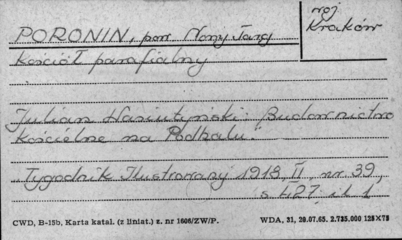 woj.
Kraków
PORONIN, pow. Nowy Targ
Kościół parafialny
Julian Wasiutyński: Budownictwo
kościelne na Podhalu.
"Tygodnik Ilustrowany 1918, II, nr 39,
s 427, il 1
CWD, B-15b, Karta katal. (z liniat.) z. nr 1606/ZW/P. WDA, 31, 20.07.65. 2.725.000 125×75